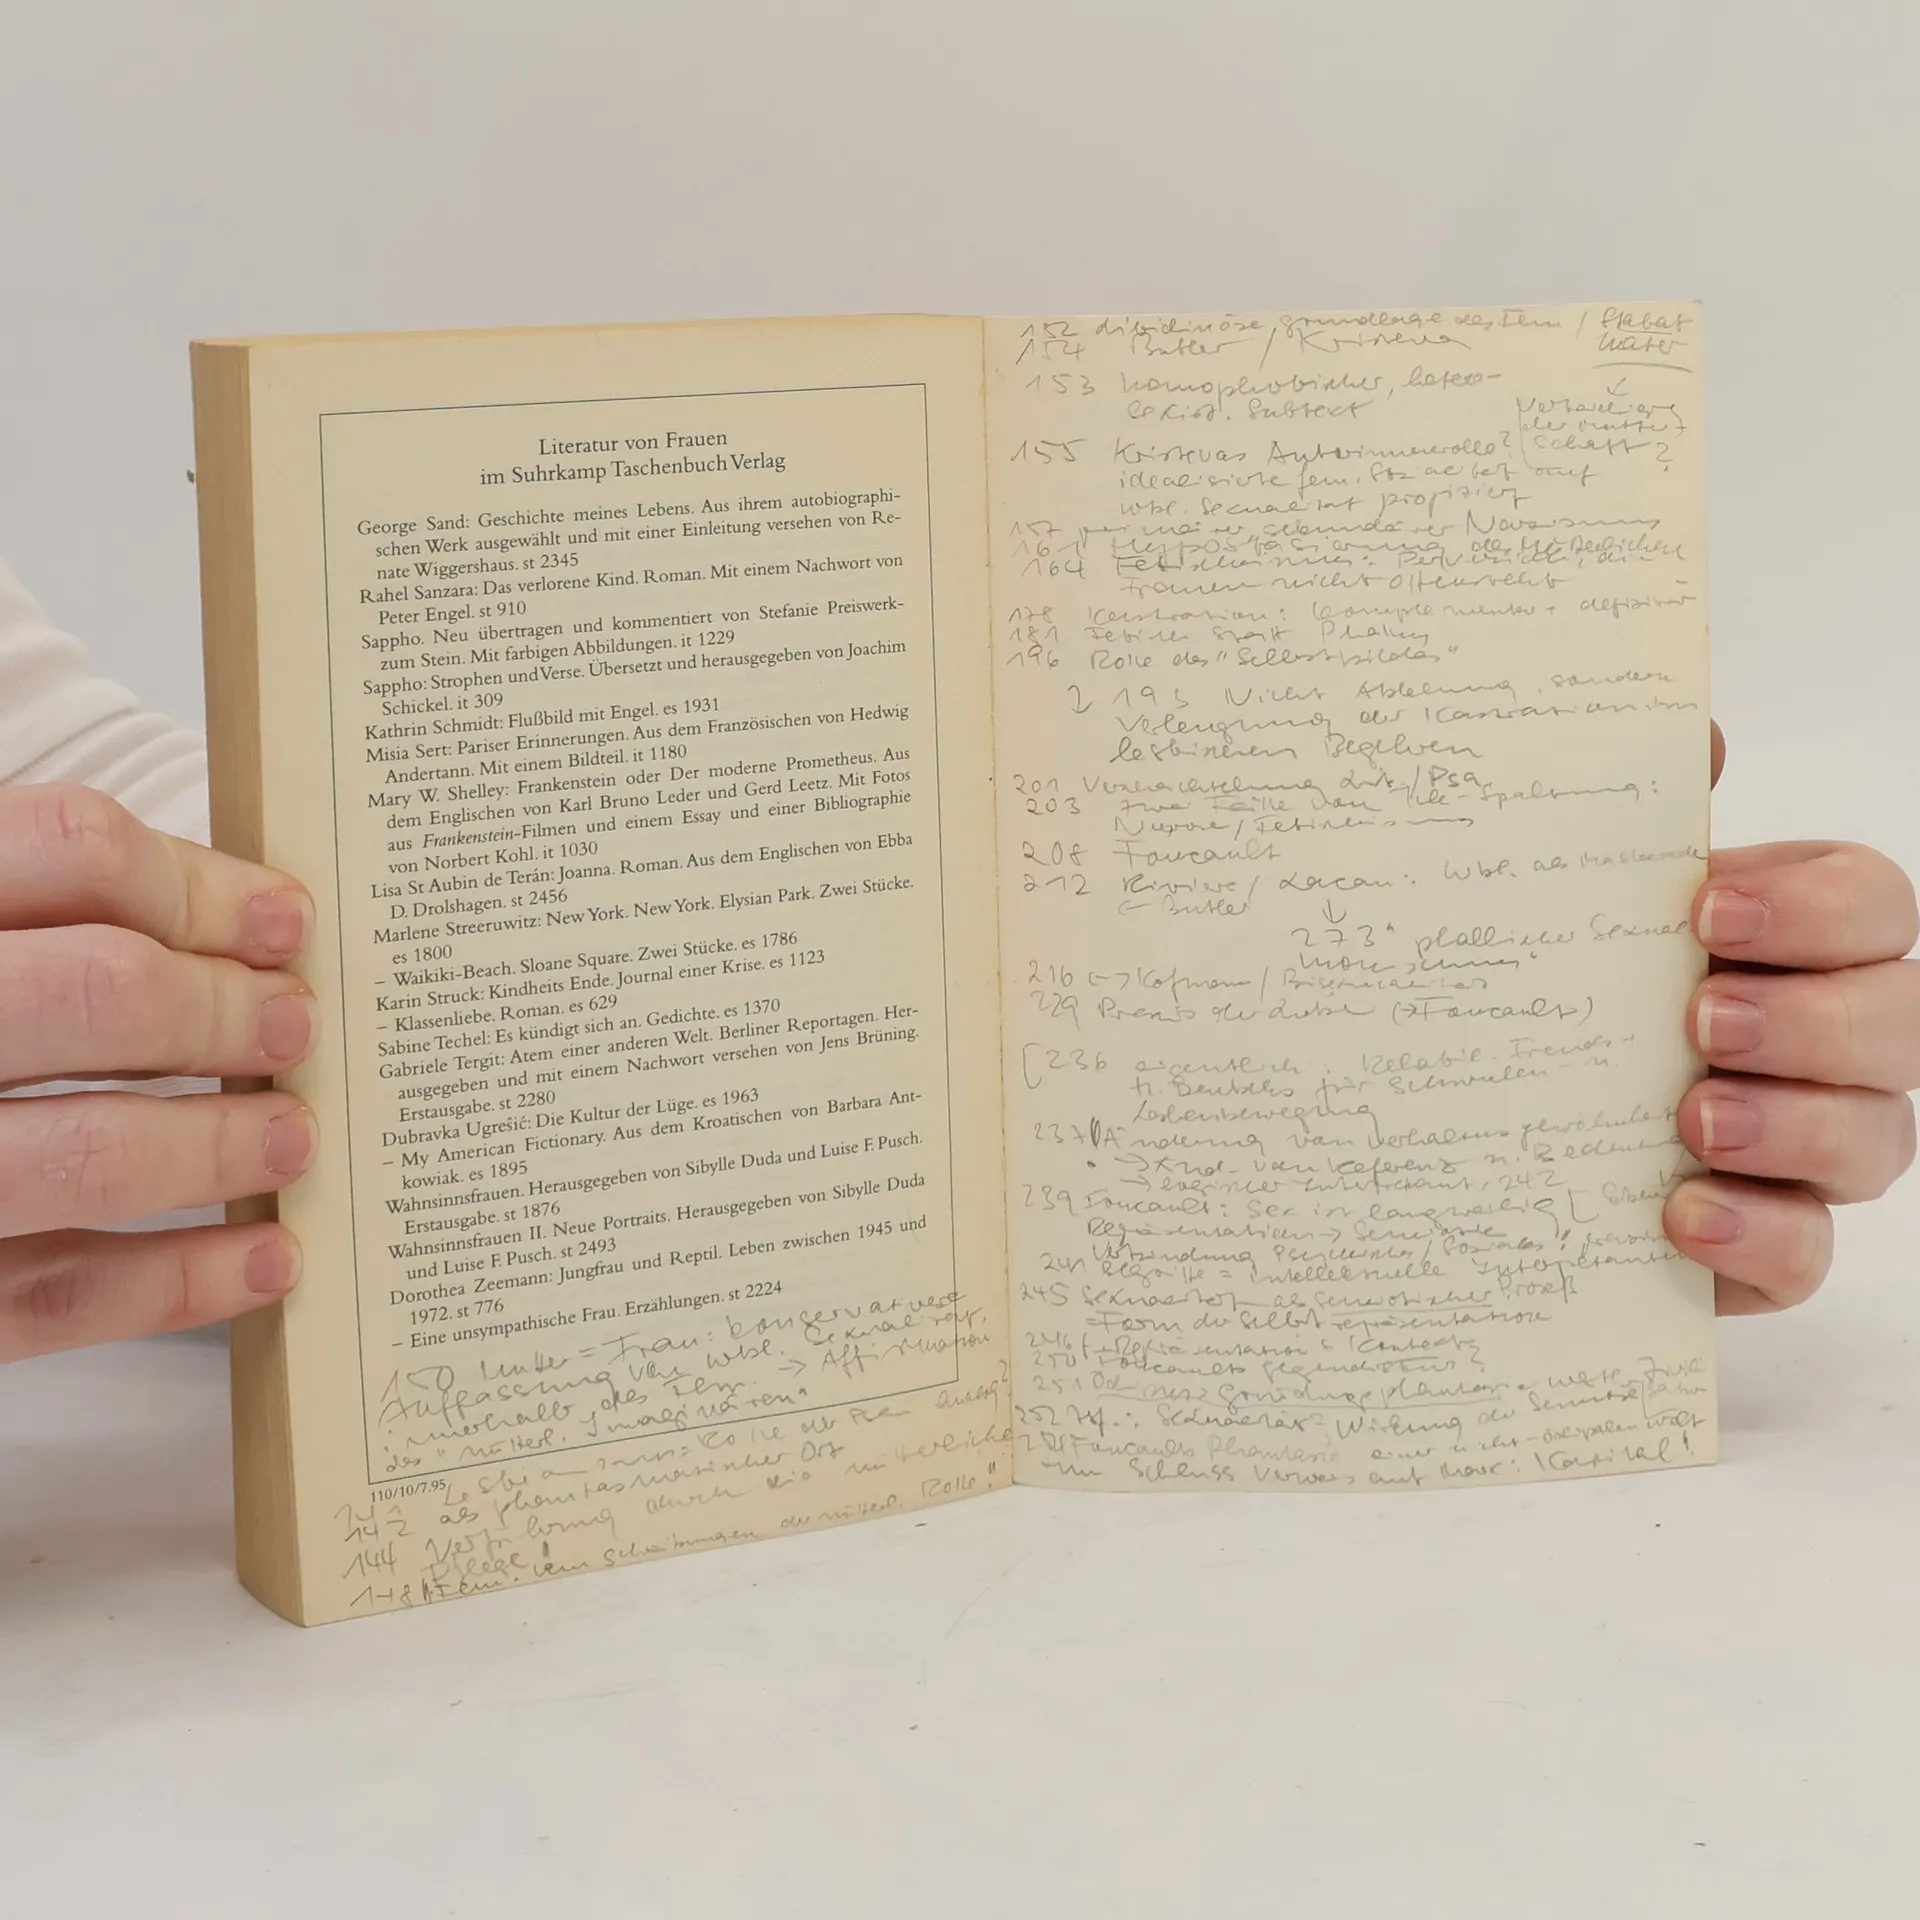 Literatur von Frauen
im Suhrkamp Taschenbuch Verlag
George Sand: Geschichte meines Lebens. Aus ihrem autobiographi-
schen Werk ausgewählt und mit einer Einleitung versehen von Re-
nate Wiggershaus. st 2345
Rahel Sanzara: Das verlorene Kind. Roman. Mit einem Nachwort von
Peter Engel. st 910
Sappho. Neu übertragen und kommentiert von Stefanie Preiswerk-
zum Stein. Mit farbigen Abbildungen. it 1229
Sappho: Strophen und Verse. Übersetzt und herausgegeben von Joachim
Schickel. it 309
Kathrin Schmidt: Flußbild mit Engel. es 1931
Misia Sert: Pariser Erinnerungen. Aus dem Französischen von Hedwig
Andertann. Mit einem Bildteil. it 1180
Mary W. Shelley: Frankenstein oder Der moderne Prometheus. Aus
dem Englischen von Karl Bruno Leder und Gerd Leetz. Mit Fotos
aus Frankenstein-Filmen und einem Essay und einer Bibliographie
von Norbert Kohl. it 1030
Lisa St Aubin de Terán: Joanna. Roman. Aus dem Englischen von Ebba
D. Drolshagen. st 2456
Marlene Streeruwitz: New York. New York. Elysian Park. Zwei Stücke.
es 1800
– Waikiki-Beach. Sloane Square. Zwei Stücke. es 1786
Karin Struck: Kindheits Ende. Journal einer Krise. es 1123
– Klassenliebe. Roman. es 629
Sabine Techel: Es kündigt sich an. Gedichte. es 1370
Gabriele Tergit: Atem einer anderen Welt. Berliner Reportagen. Her-
ausgegeben und mit einem Nachwort versehen von Jens Brüning.
Erstausgabe. st 2280
Dubravka Ugrešić: Die Kultur der Lüge. es 1963
– My American Fictionary. Aus dem Kroatischen von Barbara Ant-
kowiak. es 1895
Wahnsinnsfrauen. Herausgegeben von Sibylle Duda und Luise F. Pusch.
Erstausgabe. st 1876
Wahnsinnsfrauen II. Neue Portraits. Herausgegeben von Sibylle Duda
und Luise F. Pusch. st 2493
Dorothea Zeemann: Jungfrau und Reptil. Leben zwischen 1945 und
1972. st 776
– Eine unsympathische Frau. Erzählungen. st 2224
150 Mutter = Frau: konservativere
Auffassung von wbl. Sexualität,
innerhalb des Fem. → Affirmation
des "mütterl. Imaginären"
110/10/7.95
142 als phantasmatischer Ort
144 Verführung durch die mütterliche
Pflege!
148 der mütterl. Rolle"
152 libidinöse Grundlage des Fem / Stabat
Mater
154 Butler / Kristeva
153 homophobischer, hetero-
sexist. Subtext
der Mutter-
schaft?
155 Kristevas Autorinnenrolle?
idealisierte fem. auf
wbl. Sexualität projiziert
157 primärer sekundärer Narzissmus
161 Hypostasierung des Mütterlichen
164 Fetischismus: Perversion, die
Frauen nicht offensteht
178 Kastration: komplementär + defizitär
181 Fetisch statt Phallus
196 Rolle des "Selbstbildes"
193 Nicht Ablehnung, sondern
Verleugnung der Kastration im
lesbischen Begehren
201 Lit/Psa
203 zwei Fälle von Ich-Spaltung:
Neurose/Fetischismus
208 Foucault
212 Riviere/Lacan: wbl. als Maskerade
Butler
273 "phallischer Sexual
monismus"
216 Kofman/Bisexualität
229 Praxis der Liebe (→ Foucault)
[236 eigentlich: Rehabil. Freuds +
H. Deutschs für Schwulen- u.
Lesbenbewegung
237 Änderung von Verhaltensgewohnheit
→ logischer Interpretant, 242
239 Foucault: Sex ist langweilig
Repräsentation →
Verbindung Psychisches/Soziales!
241 Begriffe = intellektuelle Interpretanten
245 Sexualität als semiotischer Prozeß
= Form der Selbstrepräsentation
246 Repräsentation
250 Foucaults
251
252 Zsf.: Sexualität: Wirkung der
Foucaults Phantasie einer nicht-ödipalen Welt
Im Schluss Verweis auf Marx: Kapital!